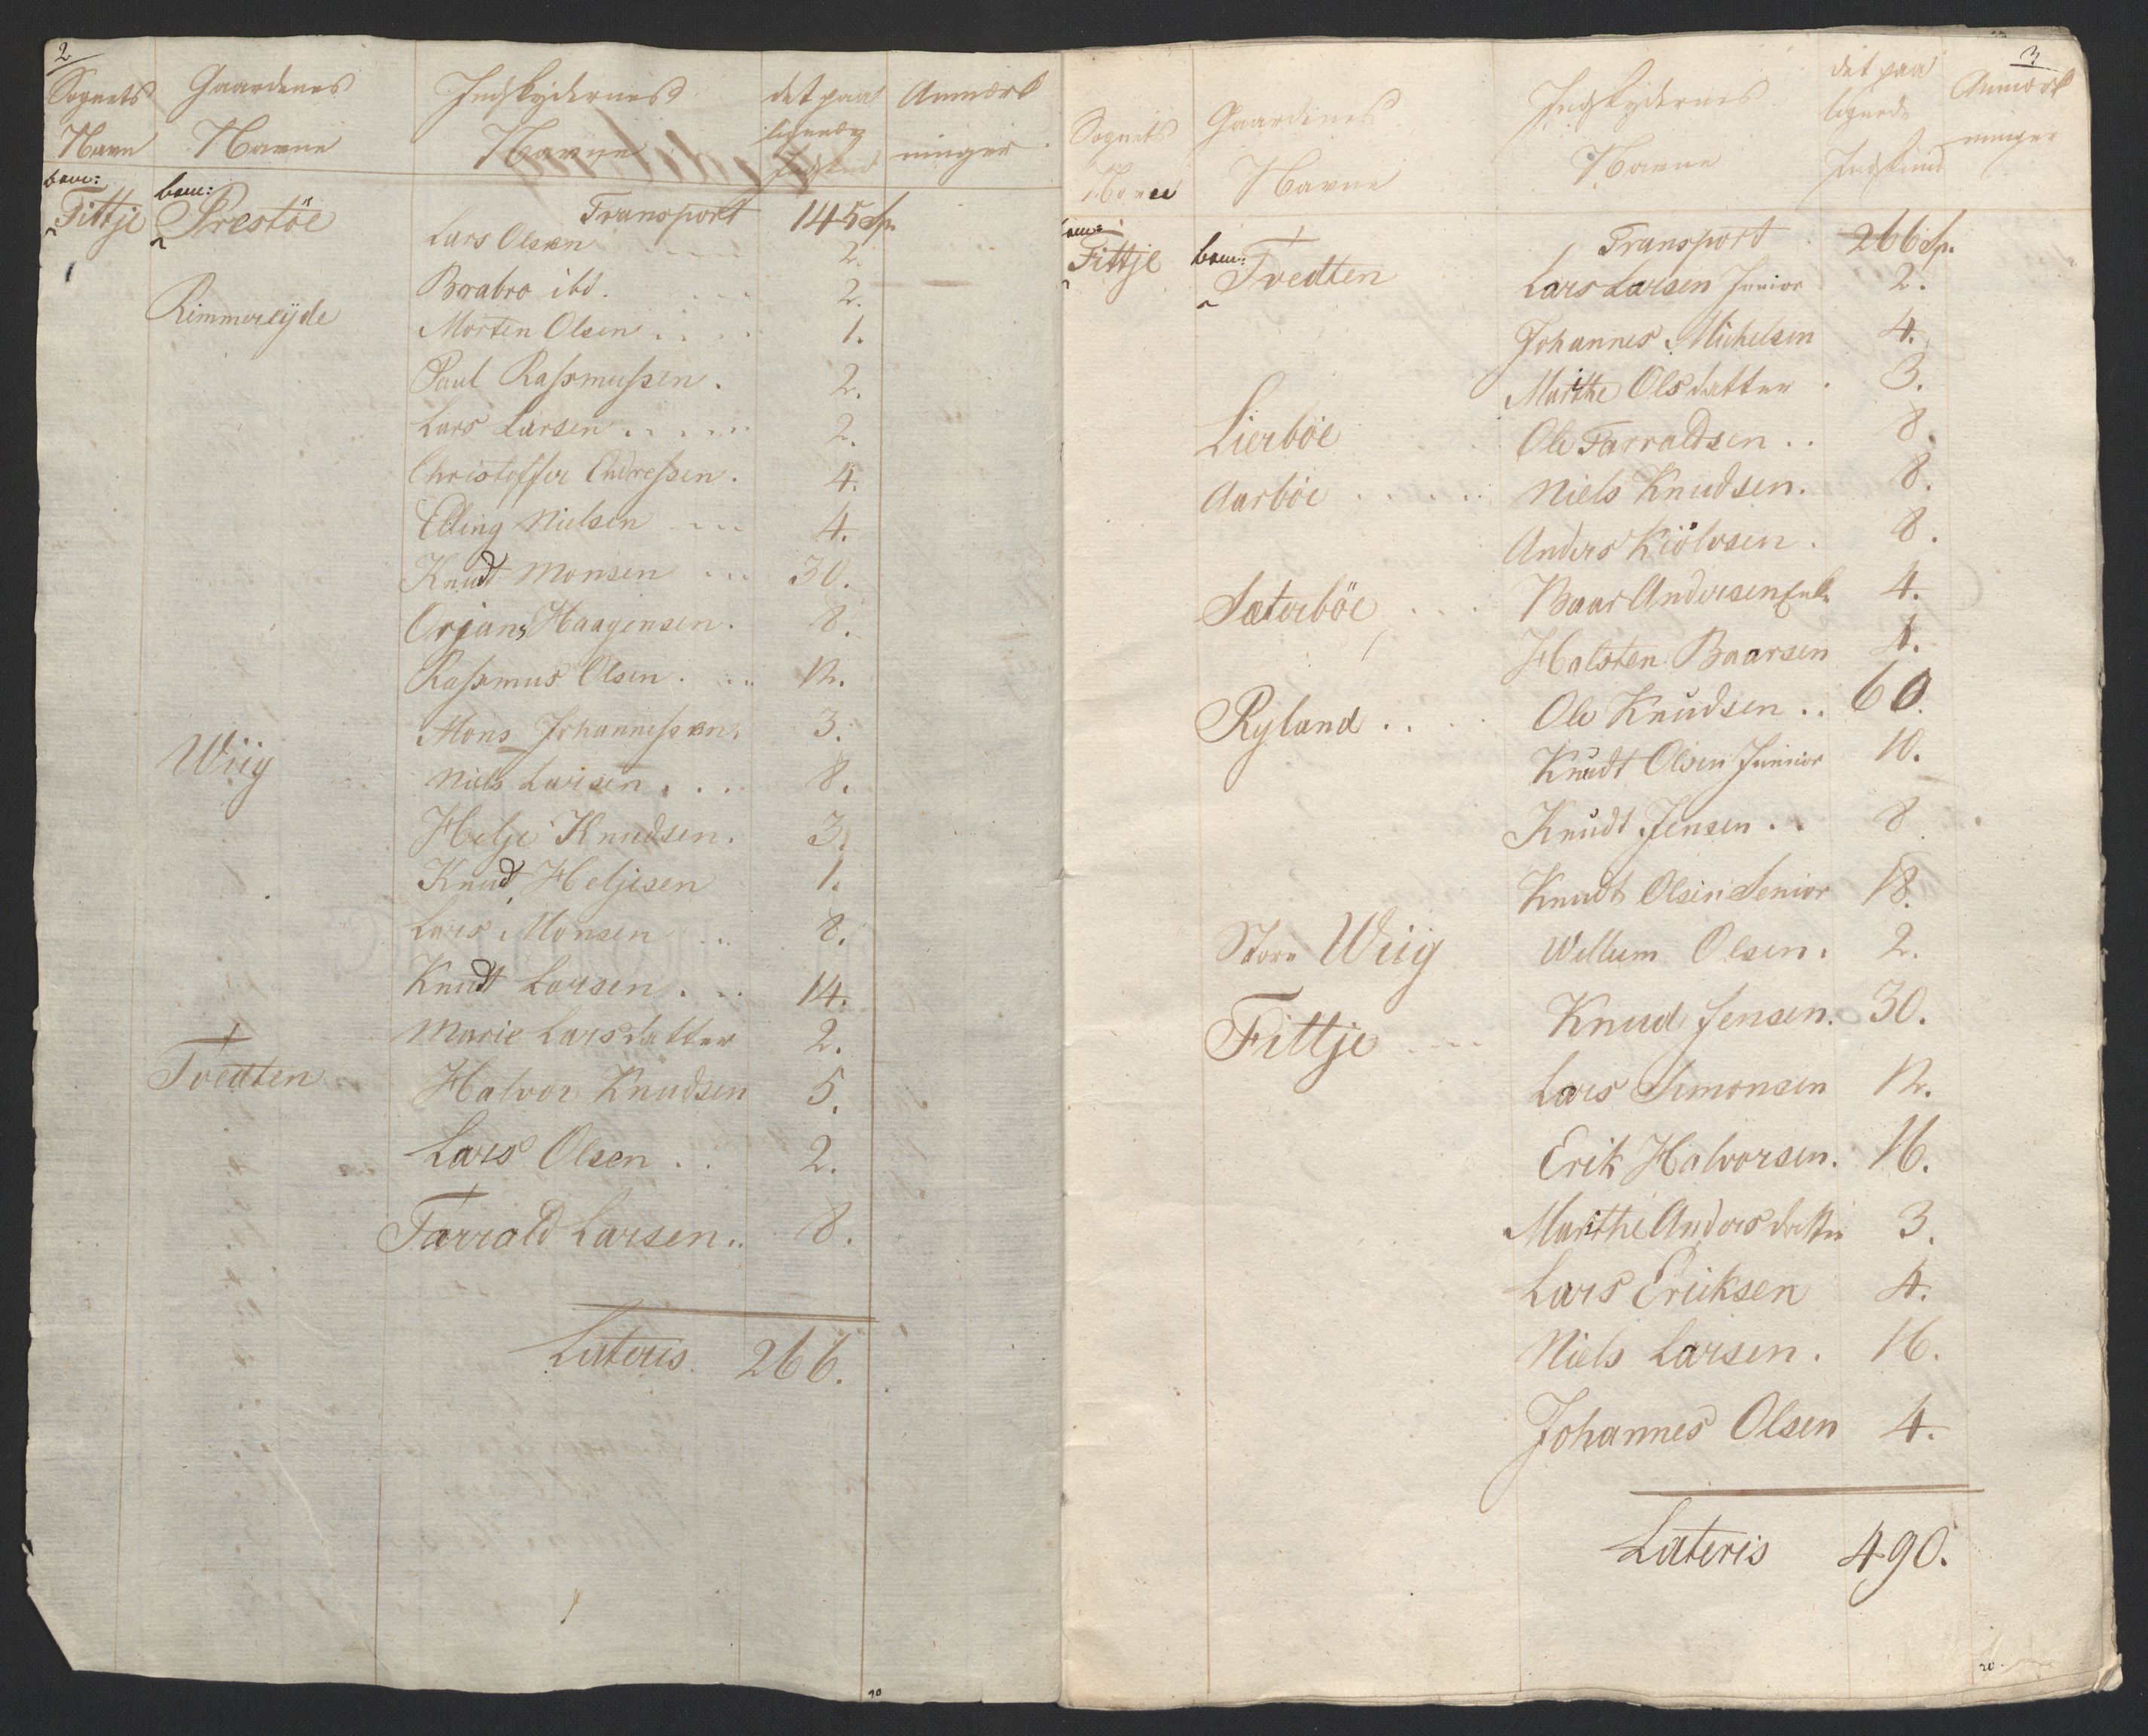 2
Sognets Navn
Gaardenes Navne
Indskydernes Navne
det paa lignede Indskud
Anmærk ninger
bem: Fittje bem: Prestöe Transport 145 Sp.
Lars Olsen 2.
Baabro ibd. 2.
Rimmereyde Morten Olsen 1.
Paul Rasmussen. 2.
Lars Larsen 2.
Christoffer Endressen. 4.
Elling Nielsen 4.
Knudt Monsen 30.
Orjans Haagensen. 8.
Rasmus Olsen. 12.
Mons Johannessen. 3.
Wiig Niels Larsen. 8.
Helje Knudsen. 3.
Knud Heljesen 1.
Lars Monsen 8.
Knudt Larsen. 14.
Marie Larsdatter 2.
Tvedten Halvor Knudsen 5.
Lars Olsen 2.
Tarrald Larsen. 8.
Lateris. 266.
3
Sognets Navn
Gaardenes Navne
Indskydernes Navne
det paa lignede Indskud
Anmærk ninger
bem: Fittje bem: Tvedten Transport 266 Sp.
Lars Larsen Junior 2.
Johannes Michelsen 4.
Marthe Olsdatter 3.
Lierböe Ole Tarraldsen 8.
Aarböe Niels Knudsen. 8.
Anders Kiölvsen. 8.
Sæterböe Baar Andersen Enke 4.
Halsten Baarsen 4.
Ryland Ole Knudsen 60.
Knudt Olsen Junior 10.
Knudt Jensen 8
Knudt Olsen Senior 18.
Store Wiig Wellum Olsen. 2.
Fittje Knud Jensen. 30.
Lars Simonsen 12.
Erik Halvorsen. 16.
Marthe Andersdatter 3.
Lars Eriksen 4.
Niels Larsen. 16.
Johannes Olsen 4.
Lateris 490.